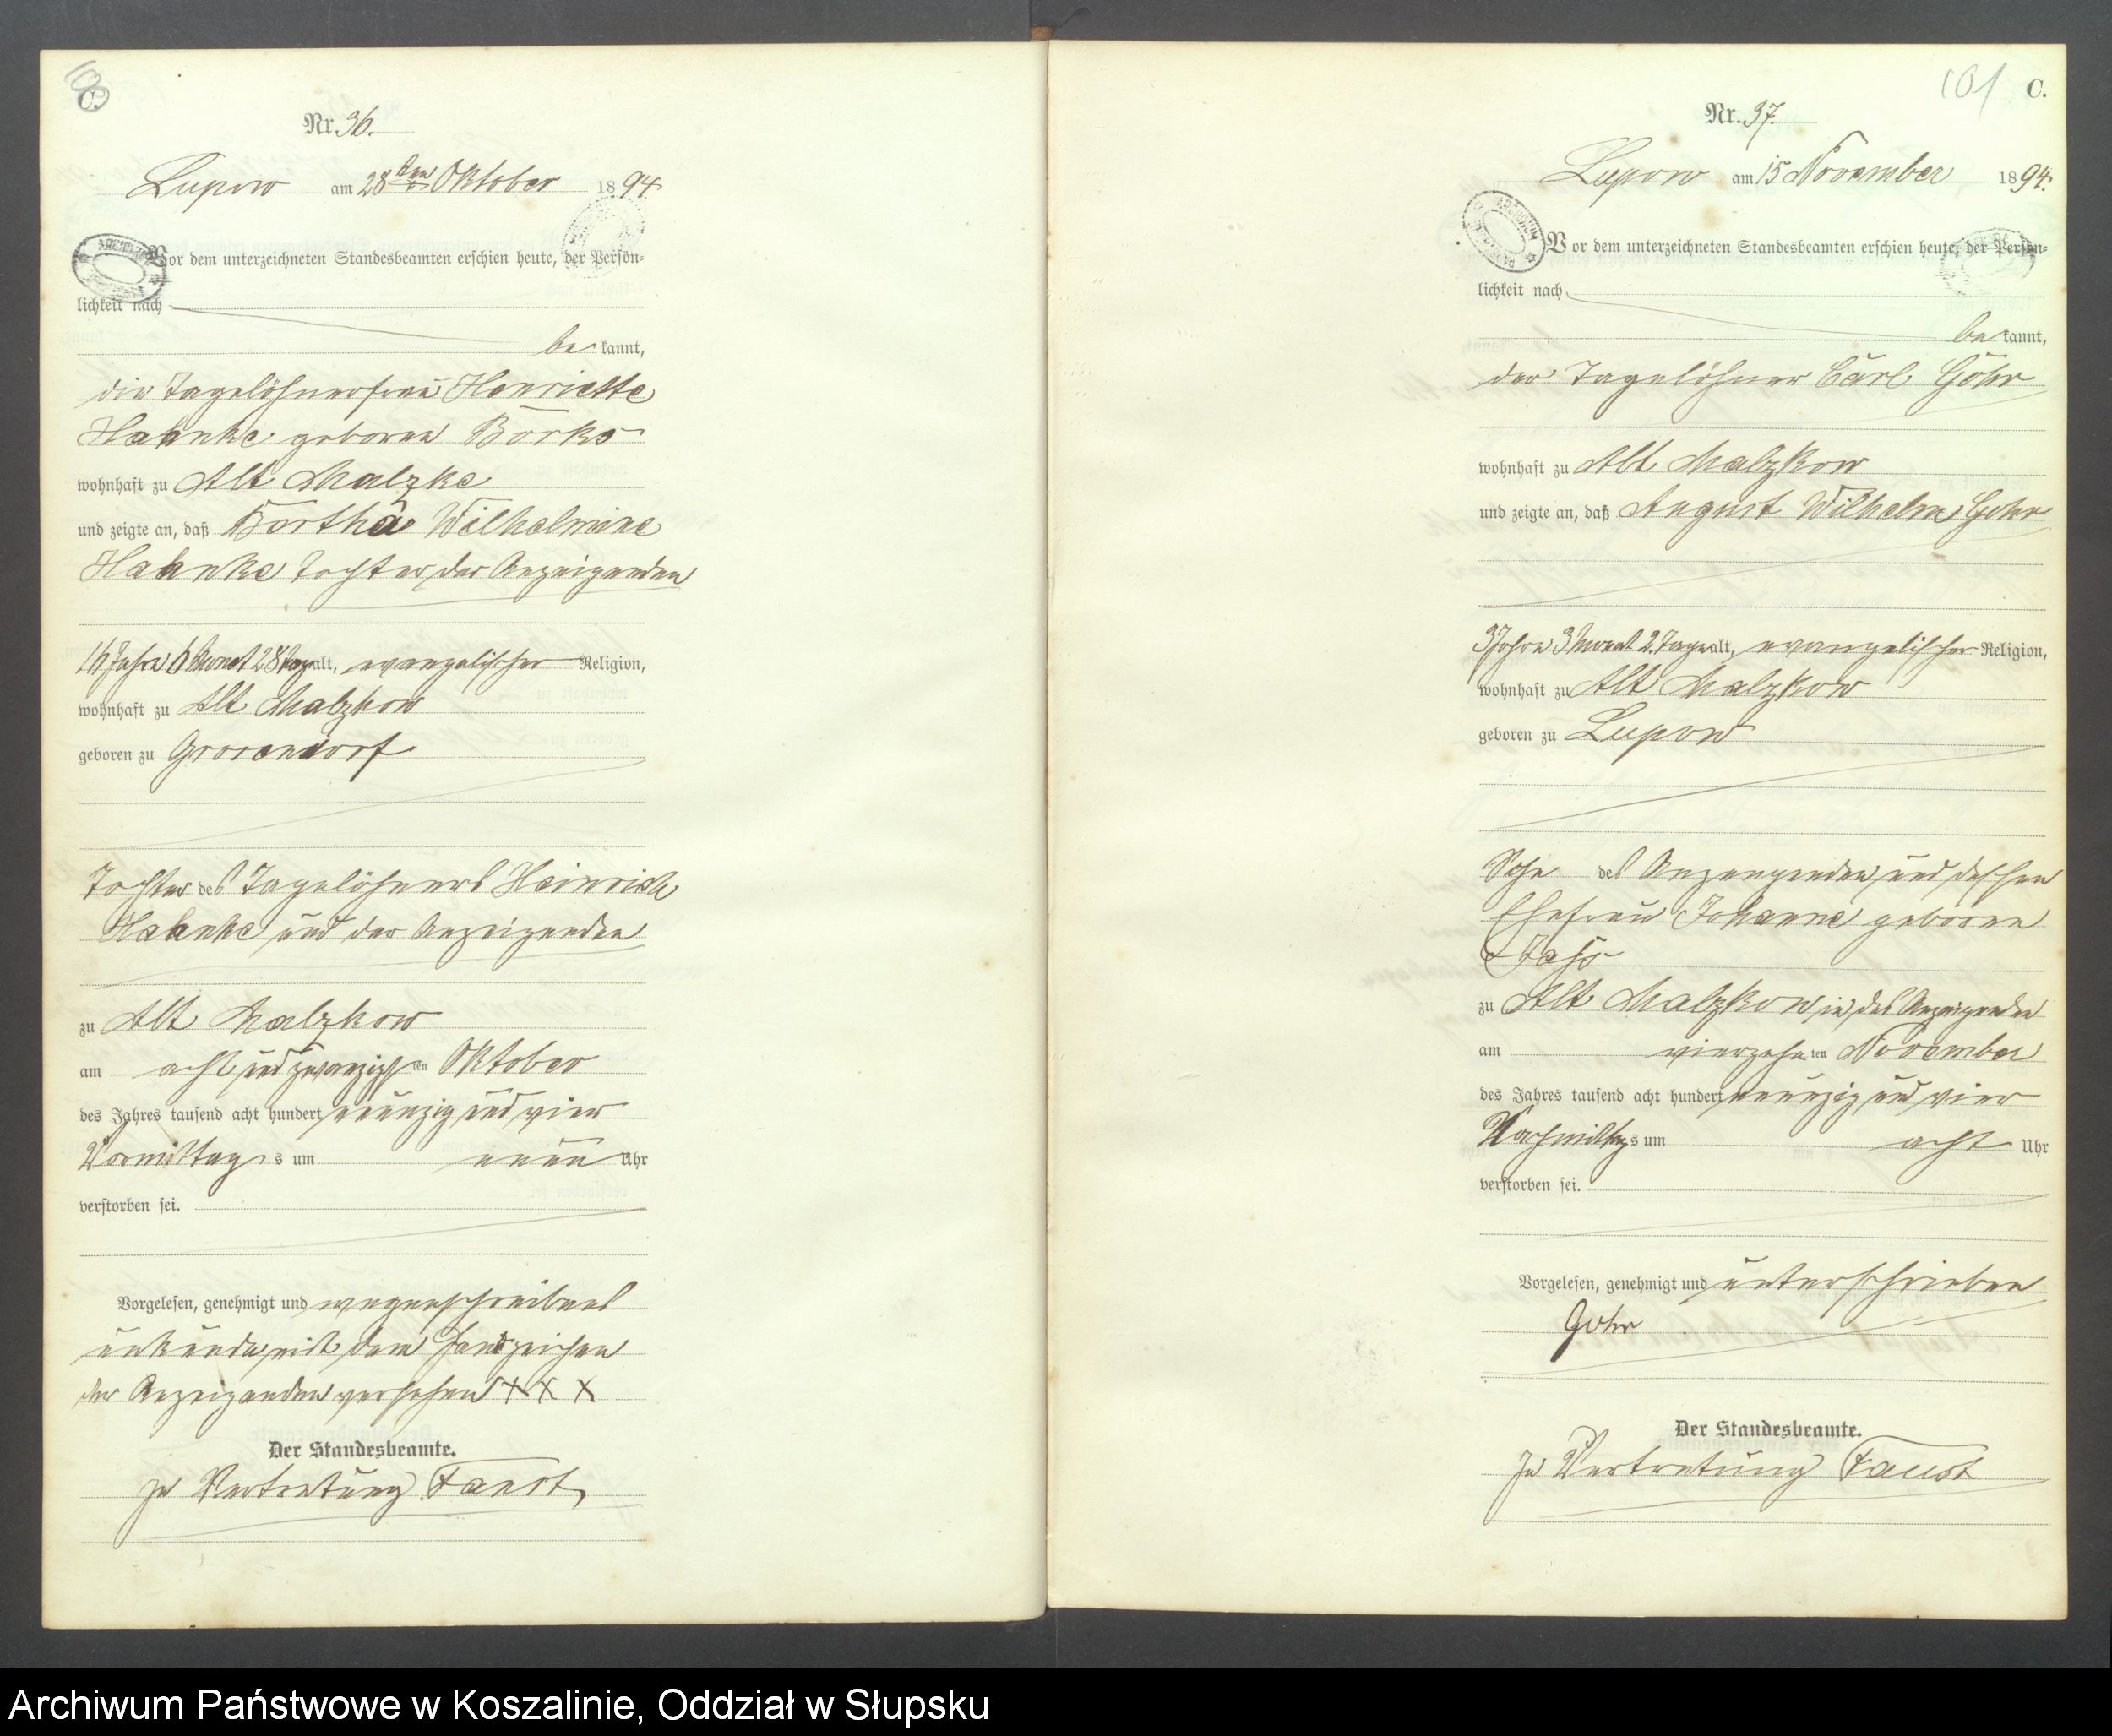 100
C.
Nr. 36.
Lupow am 28ten Oktober 1894.
Vor dem unterzeichneten Standesbeamten erschien heute, der Persön-
lichkeit nach
be kannt,
die Tagelöhnerfrau Henriette
Hahnke geborene Börks
wohnhaft zu Alt Malzke
und zeigte an, daß Bertha Wilhelmine
Hahnke Tochter der Anzeigenden
6 Monat 28 Tage alt, evangelischer Religion,
wohnhaft zu Alt Malzkow
geboren zu Grosendorf
Tochter des Tagelöhners Heinrich
Hahnke und der Anzeigenden
zu Alt Malzkow
am acht und zwanzigsten Oktober
des Jahres tausend acht hundert neunzig und vier
Vormittags um neun Uhr
verstorben sei.
Vorgelesen, genehmigt und wegen schreibens
unkunde mit dem Handzeichen
der Anzeigenden versehen XXX
Der Standesbeamte.
In Vertretung Faust
101 C.
Nr. 37.
Lupow am 15 November 1894.
ARCHIWUM
Vor dem unterzeichneten Standesbeamten erschien heute, der Persön-
lichkeit nach
be kannt,
der Tagelöhner Carl Gohr
wohnhaft zu Alt Malzkow
und zeigte an, daß August Wilhelm Gohr
3 Jahre 3 Monat 2 Tage alt, evangelischer Religion,
wohnhaft zu Alt Malzkow
geboren zu Lupow
Sohn des Anzeigenden und dessen
Ehefrau Johanne geborene
Jass
zu Alt Malzkow in des Anzeigenden
am vierzehnten November
des Jahres tausend acht hundert neunzig und vier
Nachmittags um acht Uhr
verstorben sei.
Vorgelesen, genehmigt und unterschrieben
Gohr
Der Standesbeamte.
In Vertretung Faust
Archiwum Państwowe w Koszalinie, Oddział w Słupsku